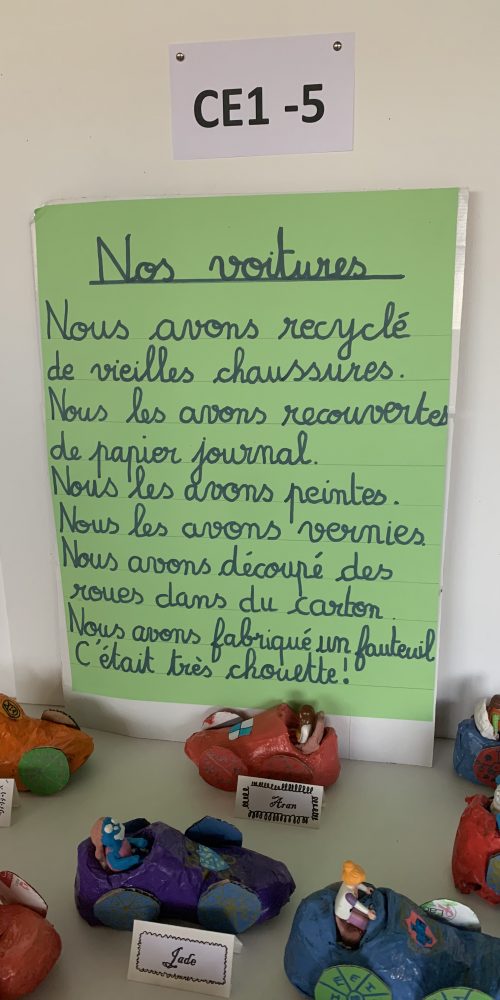 CE1 -5
Nos voitures
Nous avons recyclé
de vieilles chaussures.
Nous les avons recouvertes
de papier journal.
Nous les avons peintes.
Nous les avons vernies.
Nous avons découpé des
roues dans du carton.
Nous avons fabriqué un fauteuil
C'était très chouette!
Aran
Jade